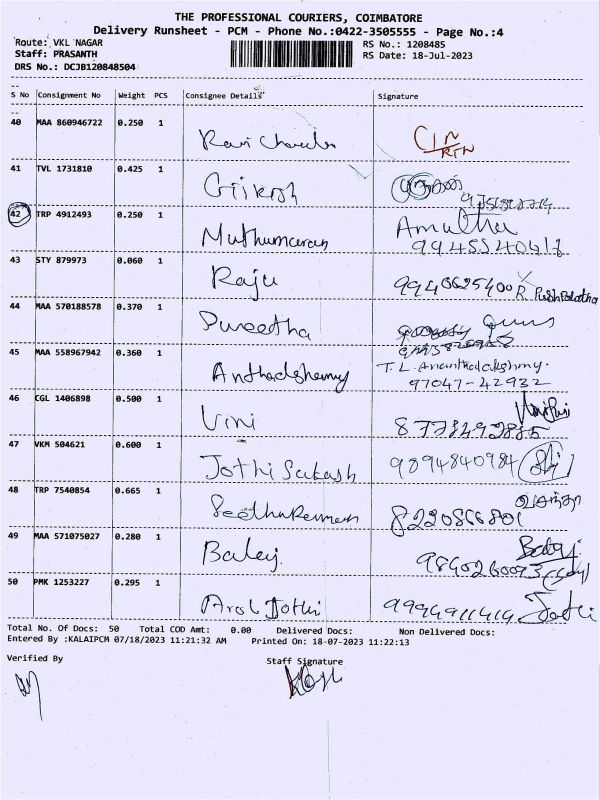 THE PROFESSIONAL COURIERS, COIMBATORE
Delivery Runsheet - PCM - Phone No.:0422-3505555 - Page No.:4
Route: VKL NAGAR RS No.: 1208485
Staff: PRASANTH RS Date: 18-Jul-2023
DRS No.: DCJB120848504
S No Consignment No Weight PCS Consignee Details Signature
40 MAA 860946722 0.250 1
RTN
41 TVL 1731810 0.425 1
42 TRP 4912493 0.250 1 Amutha
Muthumaran
43 STY 879973 0.060 1
Raju 9940625400 R. Pushpalatha
44 MAA 570188578 0.370 1
Puneetha
45 MAA 558967942 0.360 1 T.L. Ananthalakshmy.
97047-42932
46 CGL 1406898 0.500 1
Vini
47 VKM 504621 0.600 1
Jothi 9894840984
48 TRP 7540854 0.665 1
8220866801
49 MAA 571075027 0.280 1 Balaji
Balaji 9840260093
50 PMK 1253227 0.295 1
Arol Jothi 9994911414 Jothi
Total No. Of Docs: 50 Total COD Amt: 0.00 Delivered Docs: Non Delivered Docs:
Entered By :KALAIPCM 07/18/2023 11:21:32 AM Printed On: 18-07-2023 11:22:13
Verified By Staff Signature